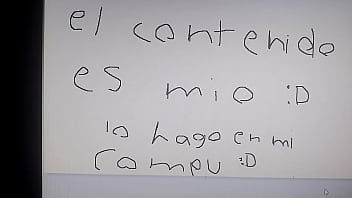 el contenido
es mio :D
lo hago en mi
compu :D